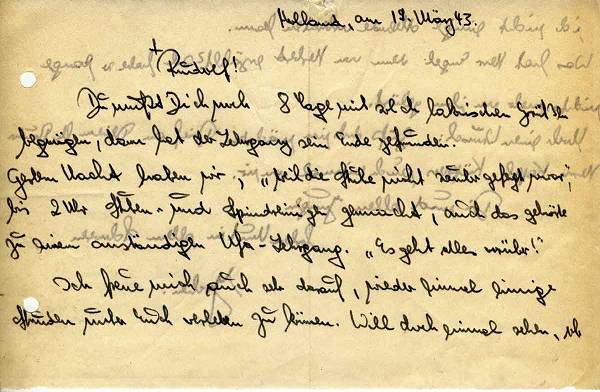 Holland, am 19. März 43.
Rudolf!
Du mußt Dich noch 8 Tage mit solch lakonischen Grüßen
begnügen, dann hat der Lehrgang sein Ende gefunden.
Gestern Nacht haben wir, „weil die Stube nicht sauber gefegt war",
bis 2 Uhr Stuben- und Spindreinigen gemacht, auch das gehört
zu einem anständigen Ufa-Lehrgang. „Es geht alles vorüber!"
Ich freue mich auch sehr darauf, wieder einmal einige
Stunden unter Euch verleben zu können. Will doch einmal sehen, ob